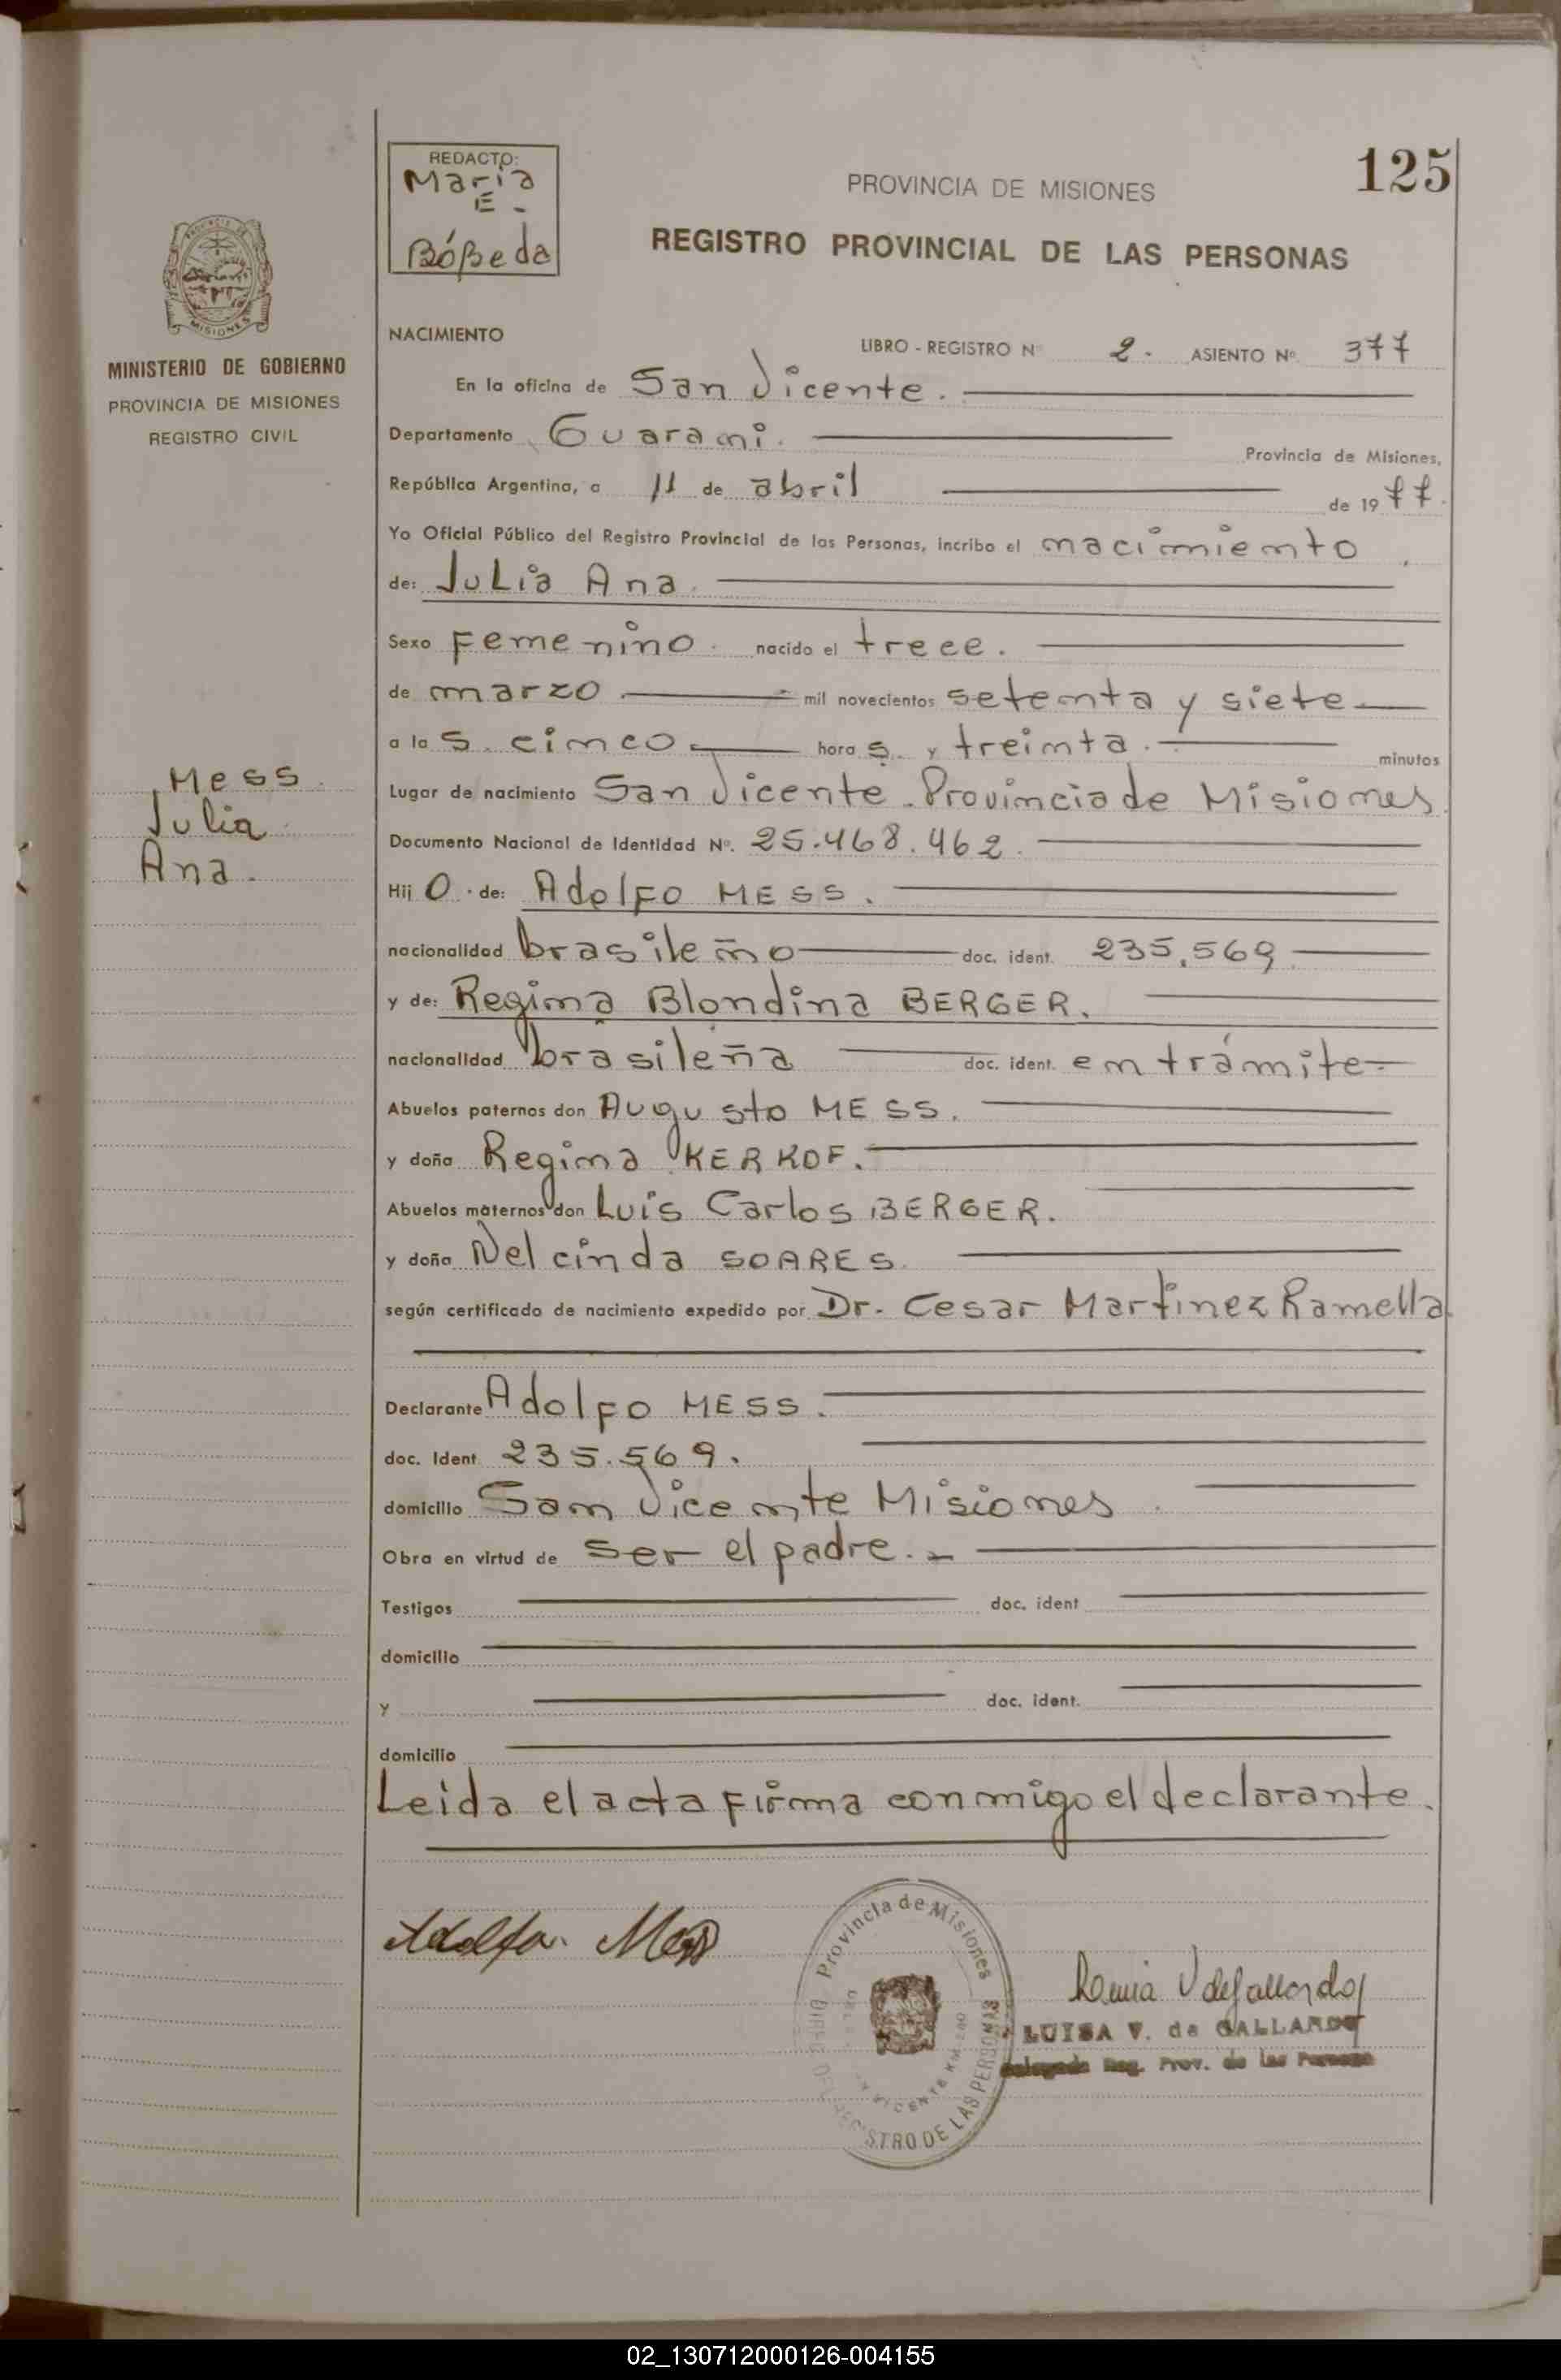 125
REDACTO:
Maria
E -
Bóbeda
PROVINCIA DE MISIONES
REGISTRO PROVINCIAL DE LAS PERSONAS
MISIONES
MINISTERIO DE GOBIERNO
PROVINCIA DE MISIONES
REGISTRO CIVIL
NACIMIENTO
LIBRO - REGISTRO Nº 2. ASIENTO Nº 377
En la oficina de San Vicente.
Departamento Guarani. Provincia de Misiones,
República Argentina, a 11 de abril de 1977.
Yo Oficial Público del Registro Provincial de las Personas, incribo el nacimiento
de: Julia Ana.
Sexo Femenino. nacido el trece.
de marzo mil novecientos setenta y siete
a las cinco horas y treinta. minutos
Lugar de nacimiento San Vicente. Provincia de Misiones.
Documento Nacional de Identidad Nº. 25.468.462.
Hijo. de: Adolfo MESS.
nacionalidad brasileño doc. ident. 235.569
y de: Regina Blondina BERGER.
nacionalidad brasileña doc. ident. en trámite
Abuelos paternos don Augusto MESS.
y doña Regina KERKOF.
Abuelos maternos don Luis Carlos BERGER.
y doña Nelcinda SOARES
según certificado de nacimiento expedido por Dr. Cesar Martinez Ramella.
Declarante Adolfo MESS.
doc. Ident 235.569.
domicilio San Vicente Misiones.
Obra en virtud de ser el padre.-
Testigos doc. ident
domicilio
y doc. ident.
domicilio
Leida el acta firma conmigo el declarante.
Mess
Julia
Ana.
Adolfo. Mess
Provincia de Misiones
REGISTRO DE LAS PERSONAS
Luisa V de Gallardo
LUISA V. de GALLARDO
Delegada Reg. Prov. de las Personas
02_130712000126-004155